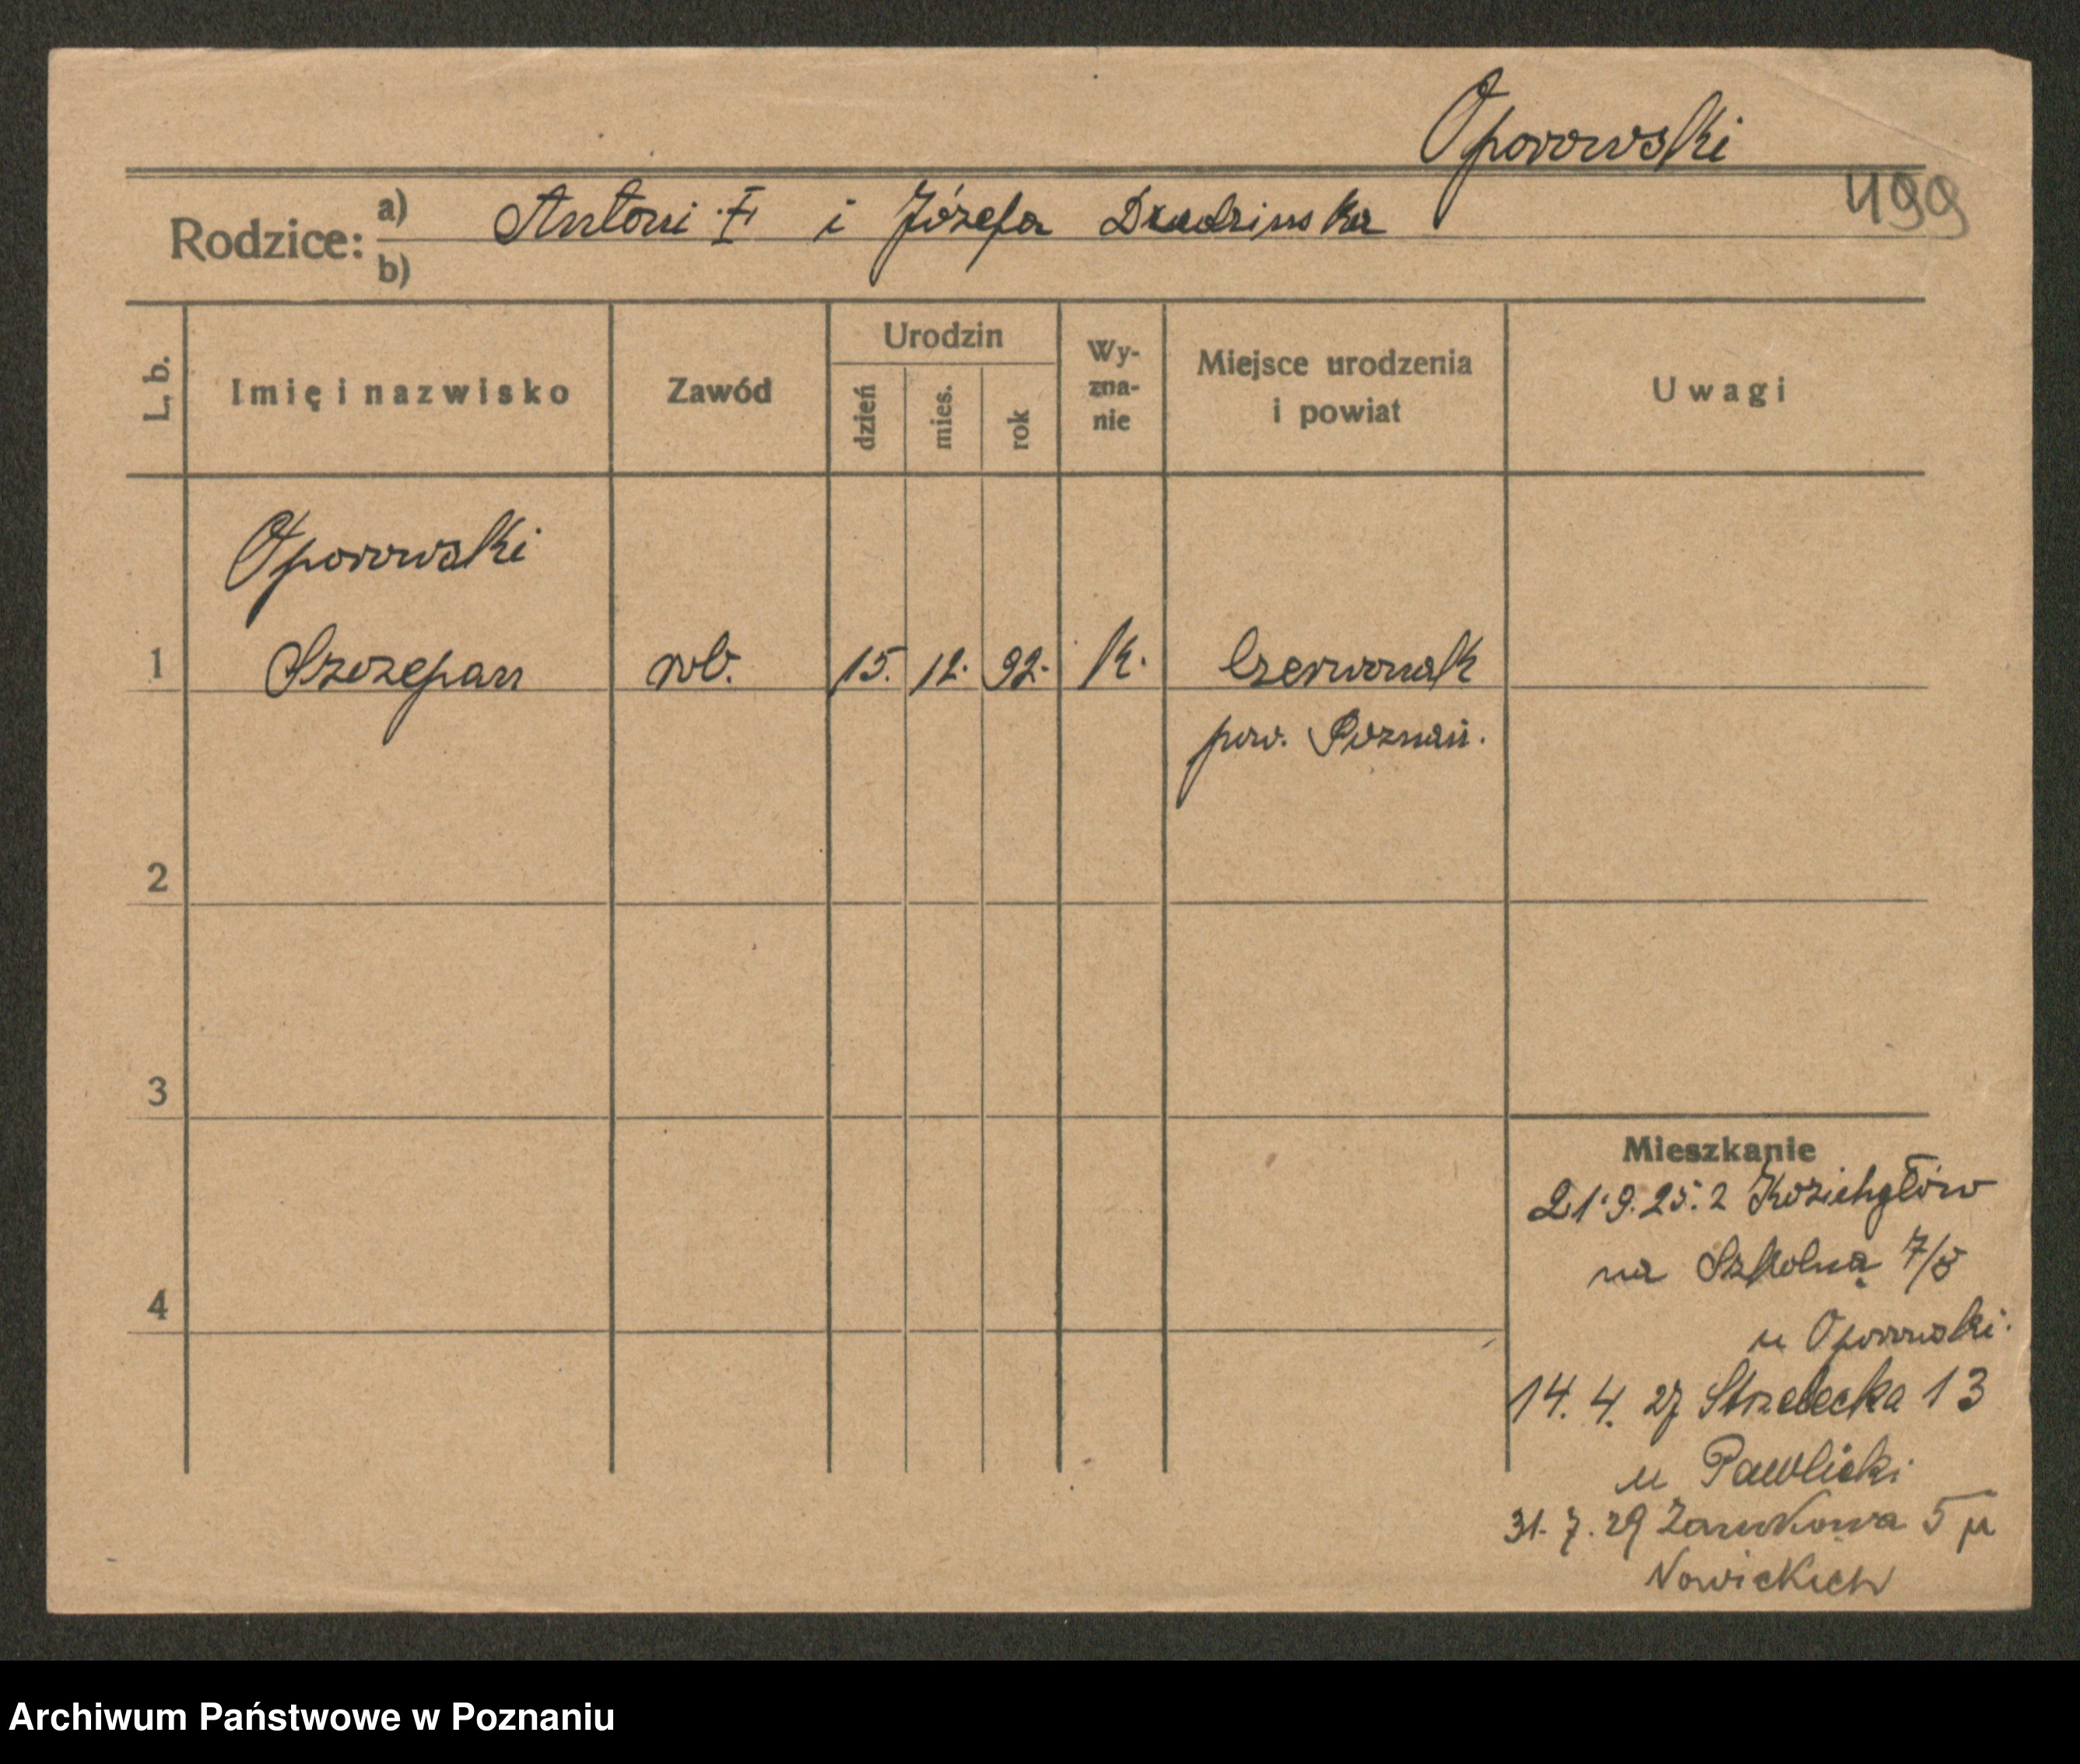 Oporowski
499
Rodzice: a) Antoni I i Józefa
b)
L. b. Imię i nazwisko Zawód Urodzin dzień mies. rok Wy-zna-nie Miejsce urodzenia i powiat Uwagi
Oporowski
1 Szczepan rob. 15. 12. 92. K. Czerwonak
pow. Poznań.
2
3
Mieszkanie
21.9.25. z Kozichgłów
na Szkolną 7/8
4
u Oporowski.
14. 4. 27 Strzelecka 13
u Pawlicki
31. 7. 29 Zamkowa 5 u
Nowickich
Archiwum Państwowe w Poznaniu